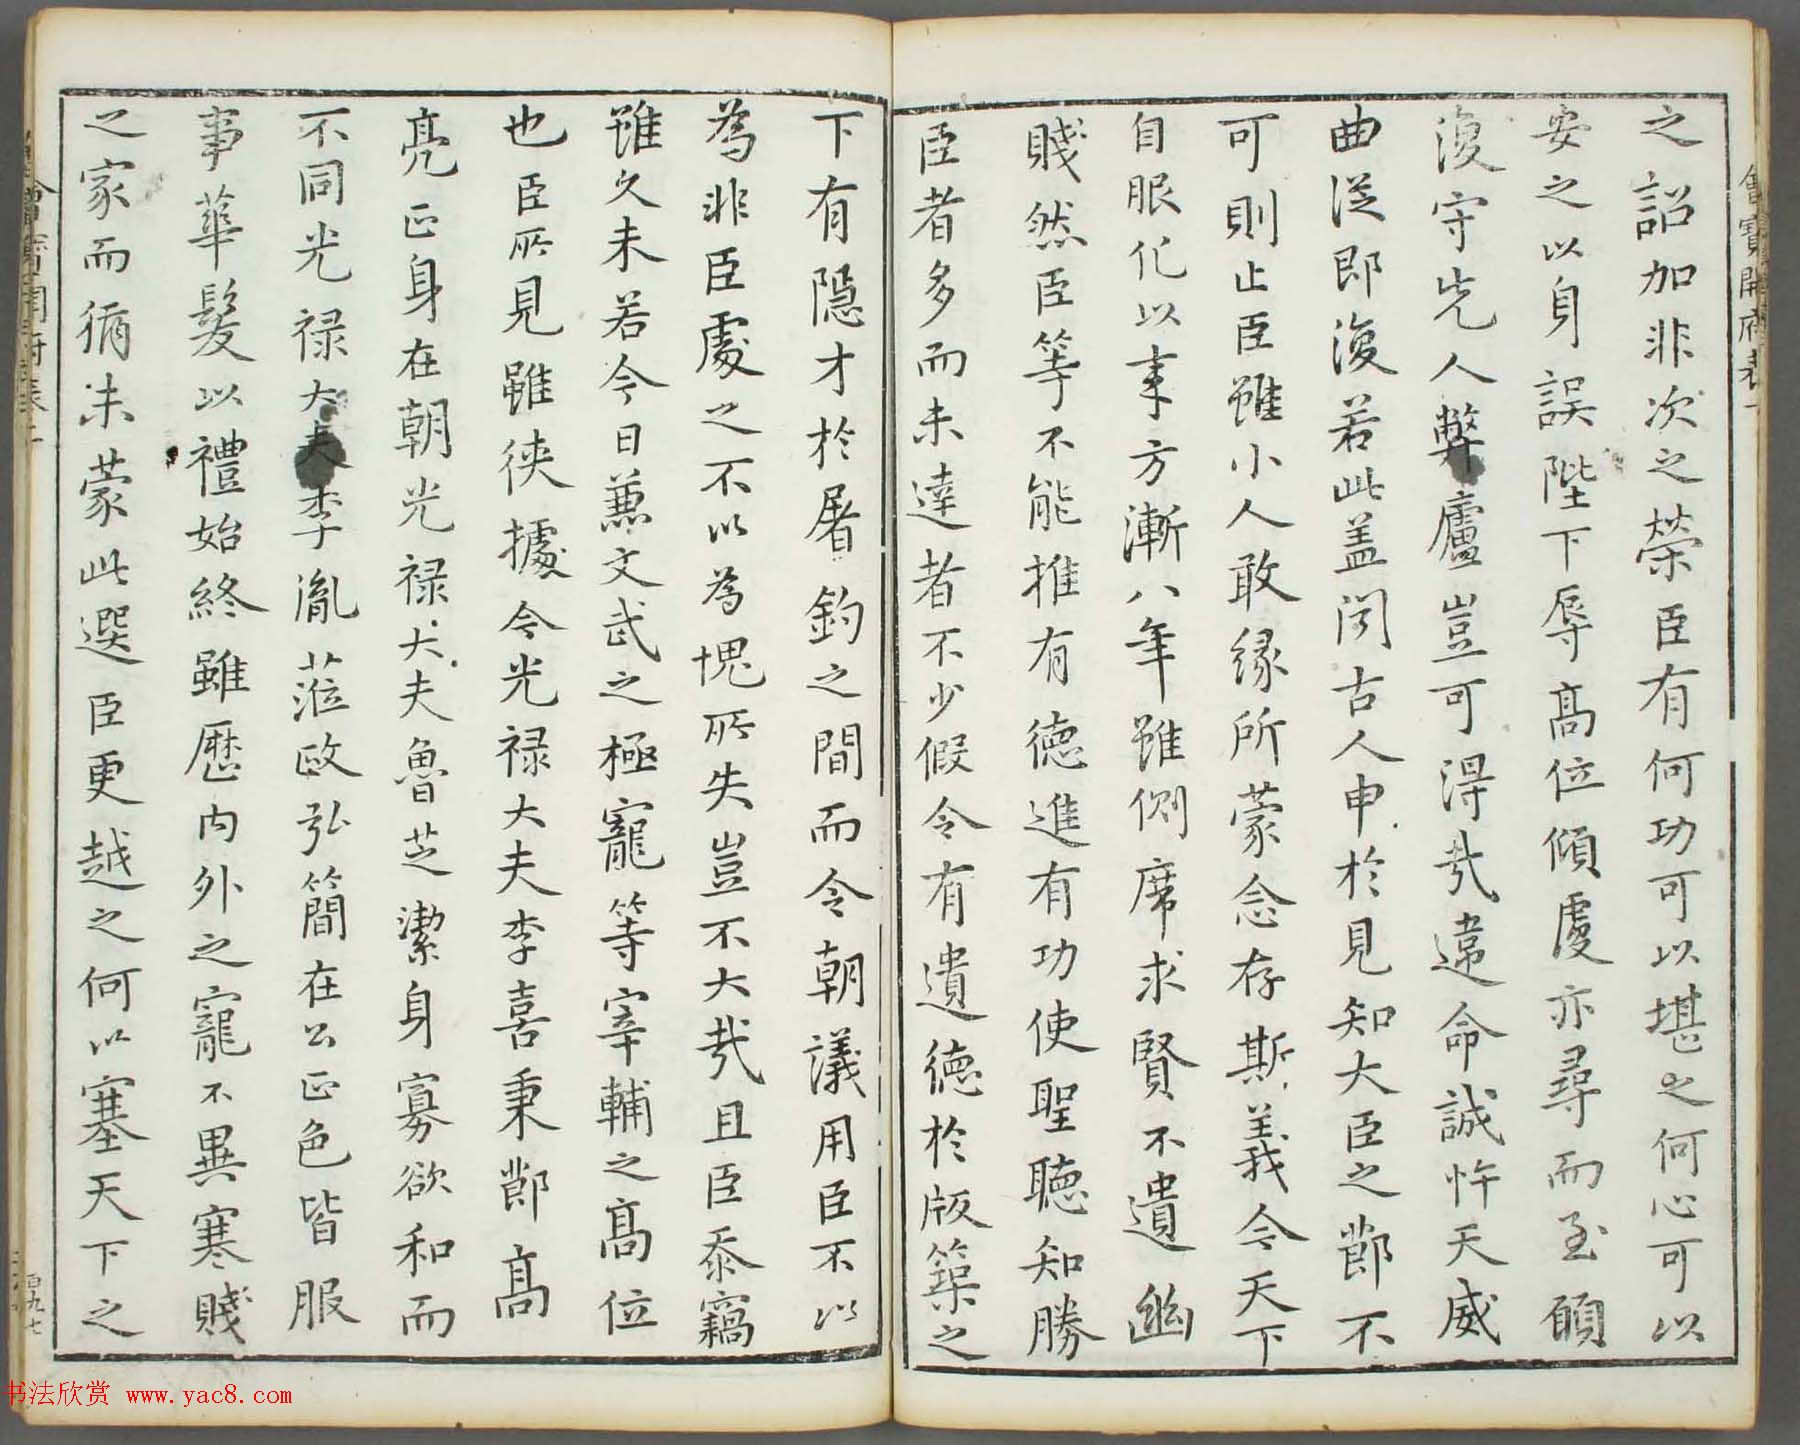 之詔加非次之榮臣有何功可以堪之何心可以
安之以身誤陛下辱高位傾覆亦尋而至願
復守先人弊廬豈可得哉違命誠忤天威
曲從即復若此盖聞古人申於見知大臣之節不
可則止臣雖小人敢緣所蒙念存斯義今天下
自服化以来方漸八年雖側席求賢不遺幽
賤然臣等不能推有德進有功使聖聽知勝
臣者多而未達者不少假令有遺德於版築之
下有隱才於屠釣之間而令朝議用臣不以
為非臣處之不以為愧所失豈不大哉且臣忝竊
雖久未若今日兼文武之極寵等宰輔之高位
也臣所見雖狹據今光禄大夫李喜秉節高
亮正身在朝光禄大夫魯芝潔身寡欲和而
不同光禄大夫李胤蒞政弘簡在公正色皆服
事華髮以禮始終雖歷内外之寵不異寒賤
之家而猶未蒙此選臣更越之何以塞天下之
书法欣赏 www.yac8.com